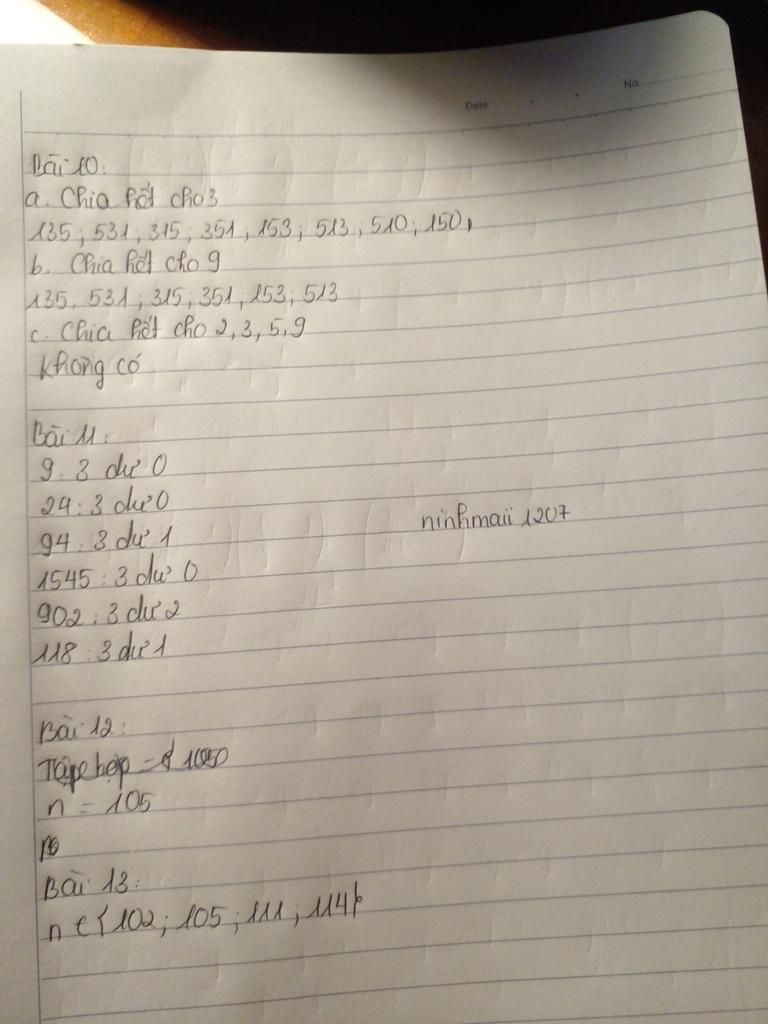 No
Date
Bài 10:
a. Chia hết cho 3
135; 531; 315; 351; 153; 513; 510; 150,
b. Chia hết cho 9
135; 531; 315; 351; 153; 513
c. Chia hết cho 2, 3, 5, 9
Không có
Bài 11:
9 : 3 dư 0
24 : 3 dư 0
94 : 3 dư 1
ninhmaii1207
1545 : 3 dư 0
902 : 3 dư 2
118 : 3 dư 1
Bài 12:
Tập hợp =
n = 105
Bài 13:
n ∈ {102; 105; 111; 114}